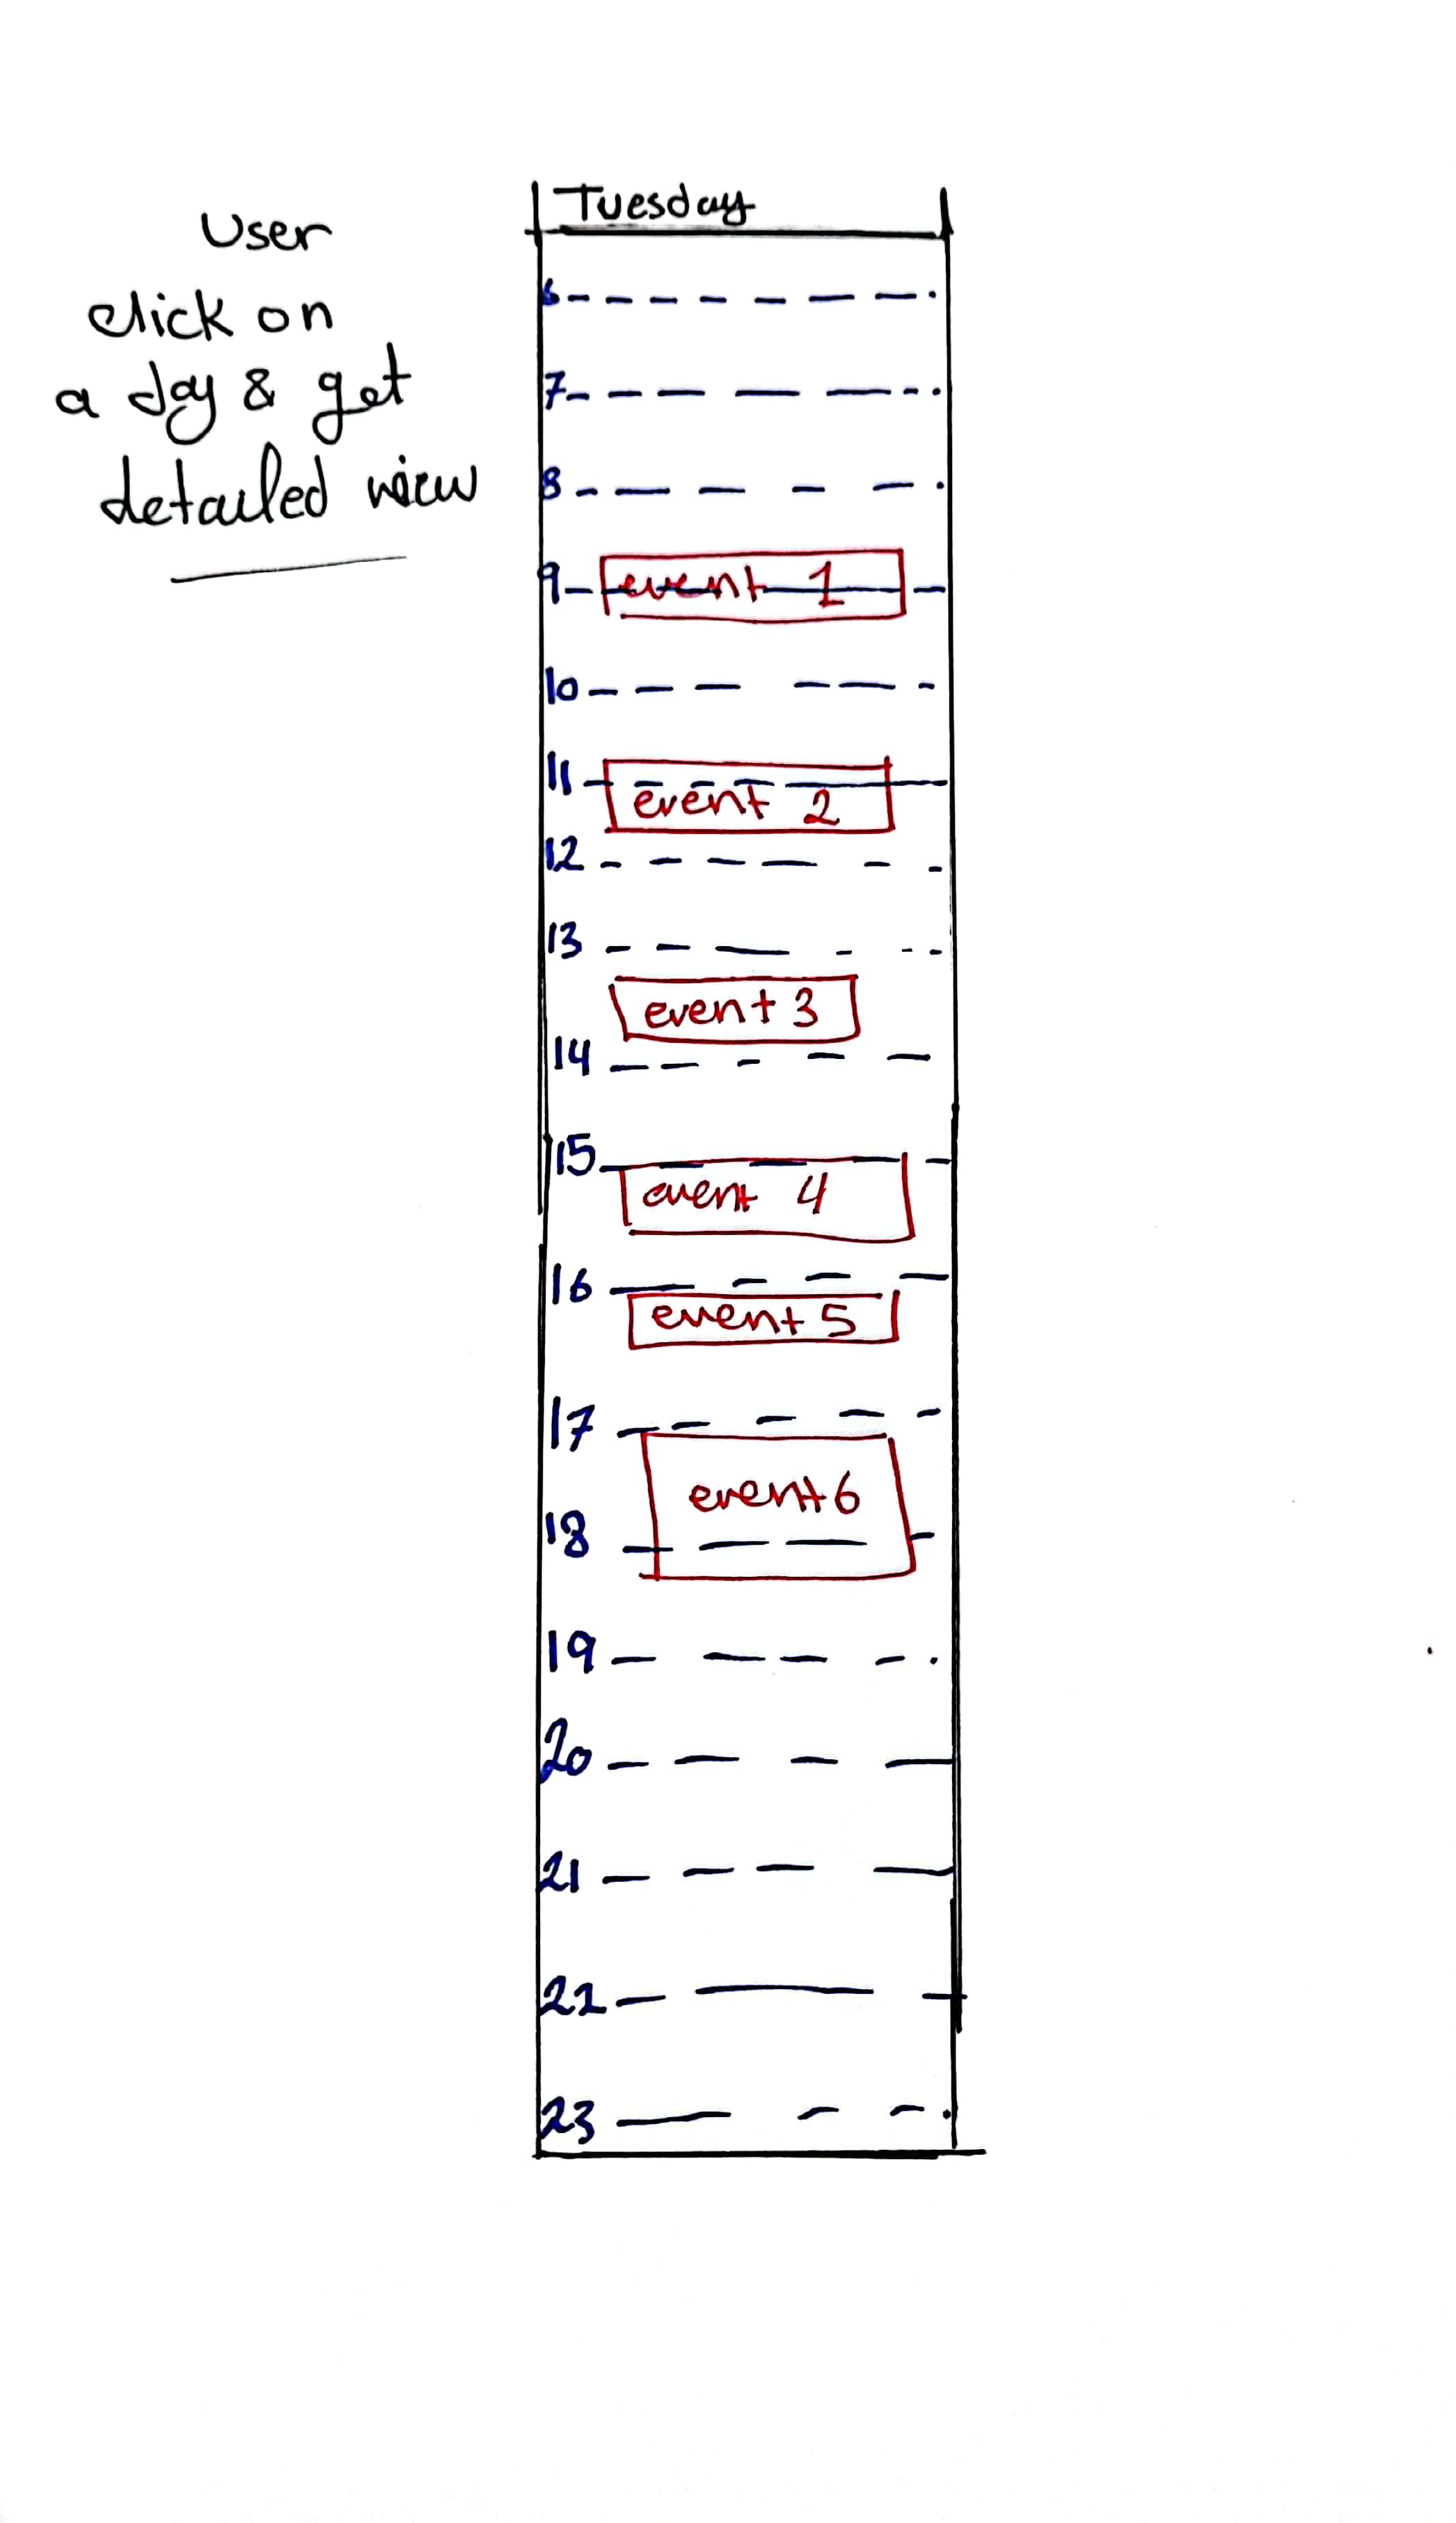 User
click on
a day & get
detailed view
Tuesday
6
7
8
9 event 1
10
11
event 2
12
13
event 3
14
15
event 4
16
event 5
17
event 6
18
19
20
21
22
23